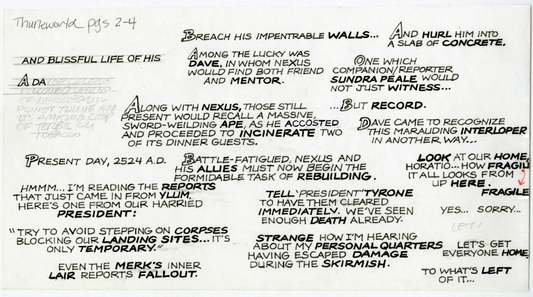 Thuneworld pgs 2-4
AND BLISSFUL LIFE OF HIS
ADA
BREACH HIS IMPENTRABLE WALLS...
AND HURL HIM INTO
A SLAB OF CONCRETE.
AMONG THE LUCKY WAS
DAVE, IN WHOM NEXUS
WOULD FIND BOTH FRIEND
AND MENTOR.
ONE WHICH
COMPANION/REPORTER
SUNDRA PEALE WOULD
NOT JUST WITNESS...
ALONG WITH NEXUS, THOSE STILL
PRESENT WOULD RECALL A MASSIVE,
SWORD-WEILDING APE, AS HE ACCOSTED
AND PROCEEDED TO INCINERATE TWO
OF ITS DINNER GUESTS.
...BUT RECORD.
DAVE CAME TO RECOGNIZE
THIS MARAUDING INTERLOPER
IN ANOTHER WAY...
PRESENT DAY, 2524 A.D.
BATTLE-FATIGUED, NEXUS AND
HIS ALLIES MUST NOW BEGIN THE
FORMIDABLE TASK OF REBUILDING.
LOOK AT OUR HOME,
HORATIO...HOW FRAGIL
IT ALL LOOKS FROM
UP HERE.
FRAGILE
HMMM...I'M READING THE REPORTS
THAT JUST CAME IN FROM YLUM.
HERE'S ONE FROM OUR HARRIED
PRESIDENT:
TELL 'PRESIDENT' TYRONE
TO HAVE THEM CLEARED
IMMEDIATELY. WE'VE SEEN
ENOUGH DEATH ALREADY.
YES... SORRY...
LET'
"TRY TO AVOID STEPPING ON CORPSES
BLOCKING OUR LANDING SITES...IT'S
ONLY TEMPORARY."
STRANGE HOW I'M HEARING
ABOUT MY PERSONAL QUARTERS
HAVING ESCAPED DAMAGE
DURING THE SKIRMISH.
LET'S GET
EVERYONE HOME,
EVEN THE MERK'S INNER
LAIR REPORTS FALLOUT.
TO WHAT'S LEFT
OF IT...